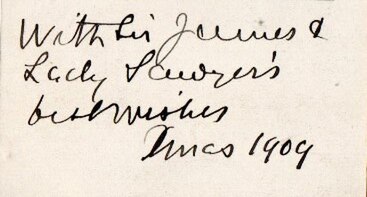 With Sir James &
Lady Sawyer's
best wishes
Xmas 1909